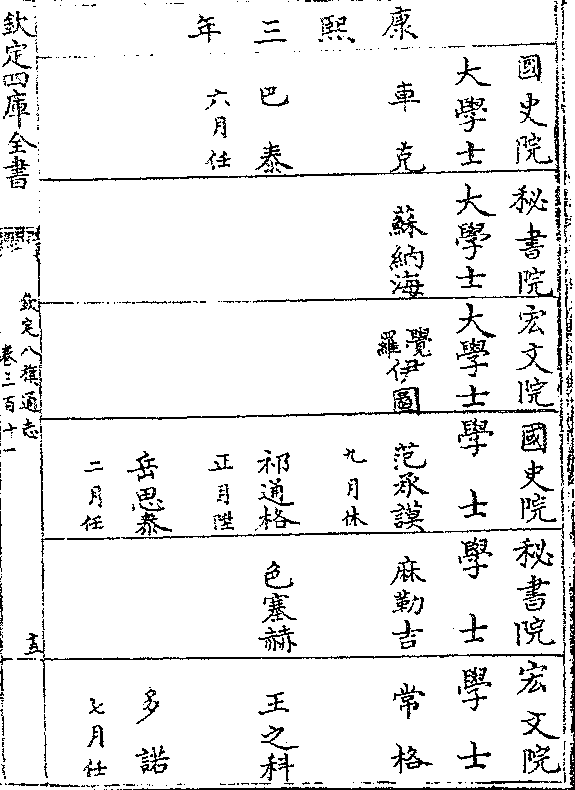 康熙三年
國史院大學士
車克
巴泰
六月任
秘書院大學士
蘇納海
宏文院大學士
覺羅伊圖
國史院學士
范承謨
九月休
祁通格
正月陞
岳思泰
二月任
秘書院學士
麻勒吉
色塞赫
宏文院學士
常格
王之科
多諾
七月任
欽定四庫全書
欽定八旗通志
卷三百十一